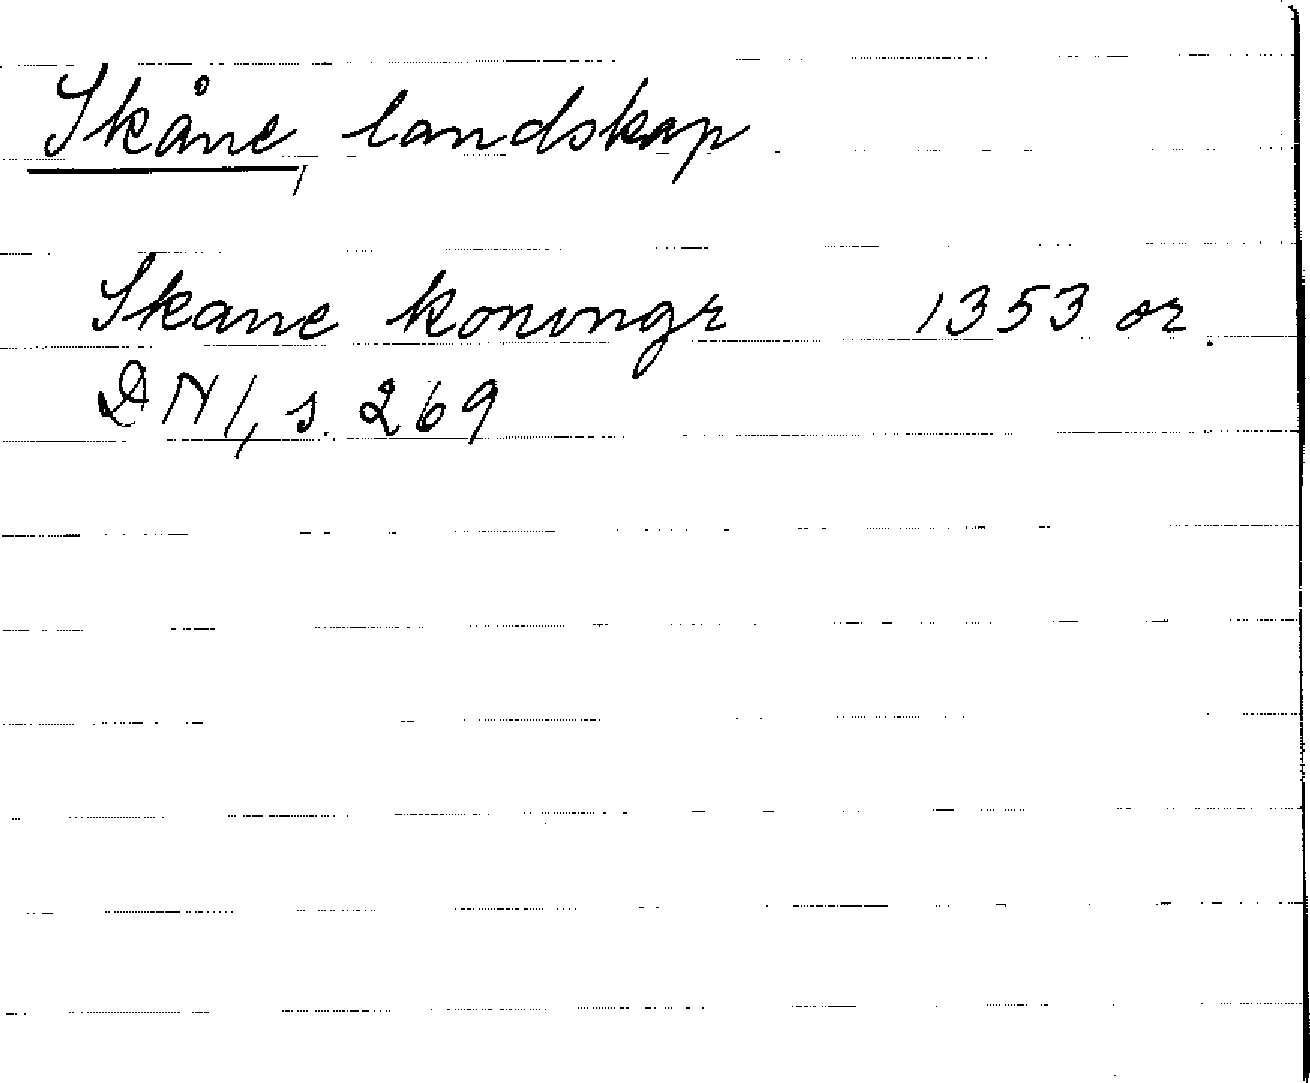 Skåne, landskap
Skane konongr 1353 or.
DN 1, s. 269